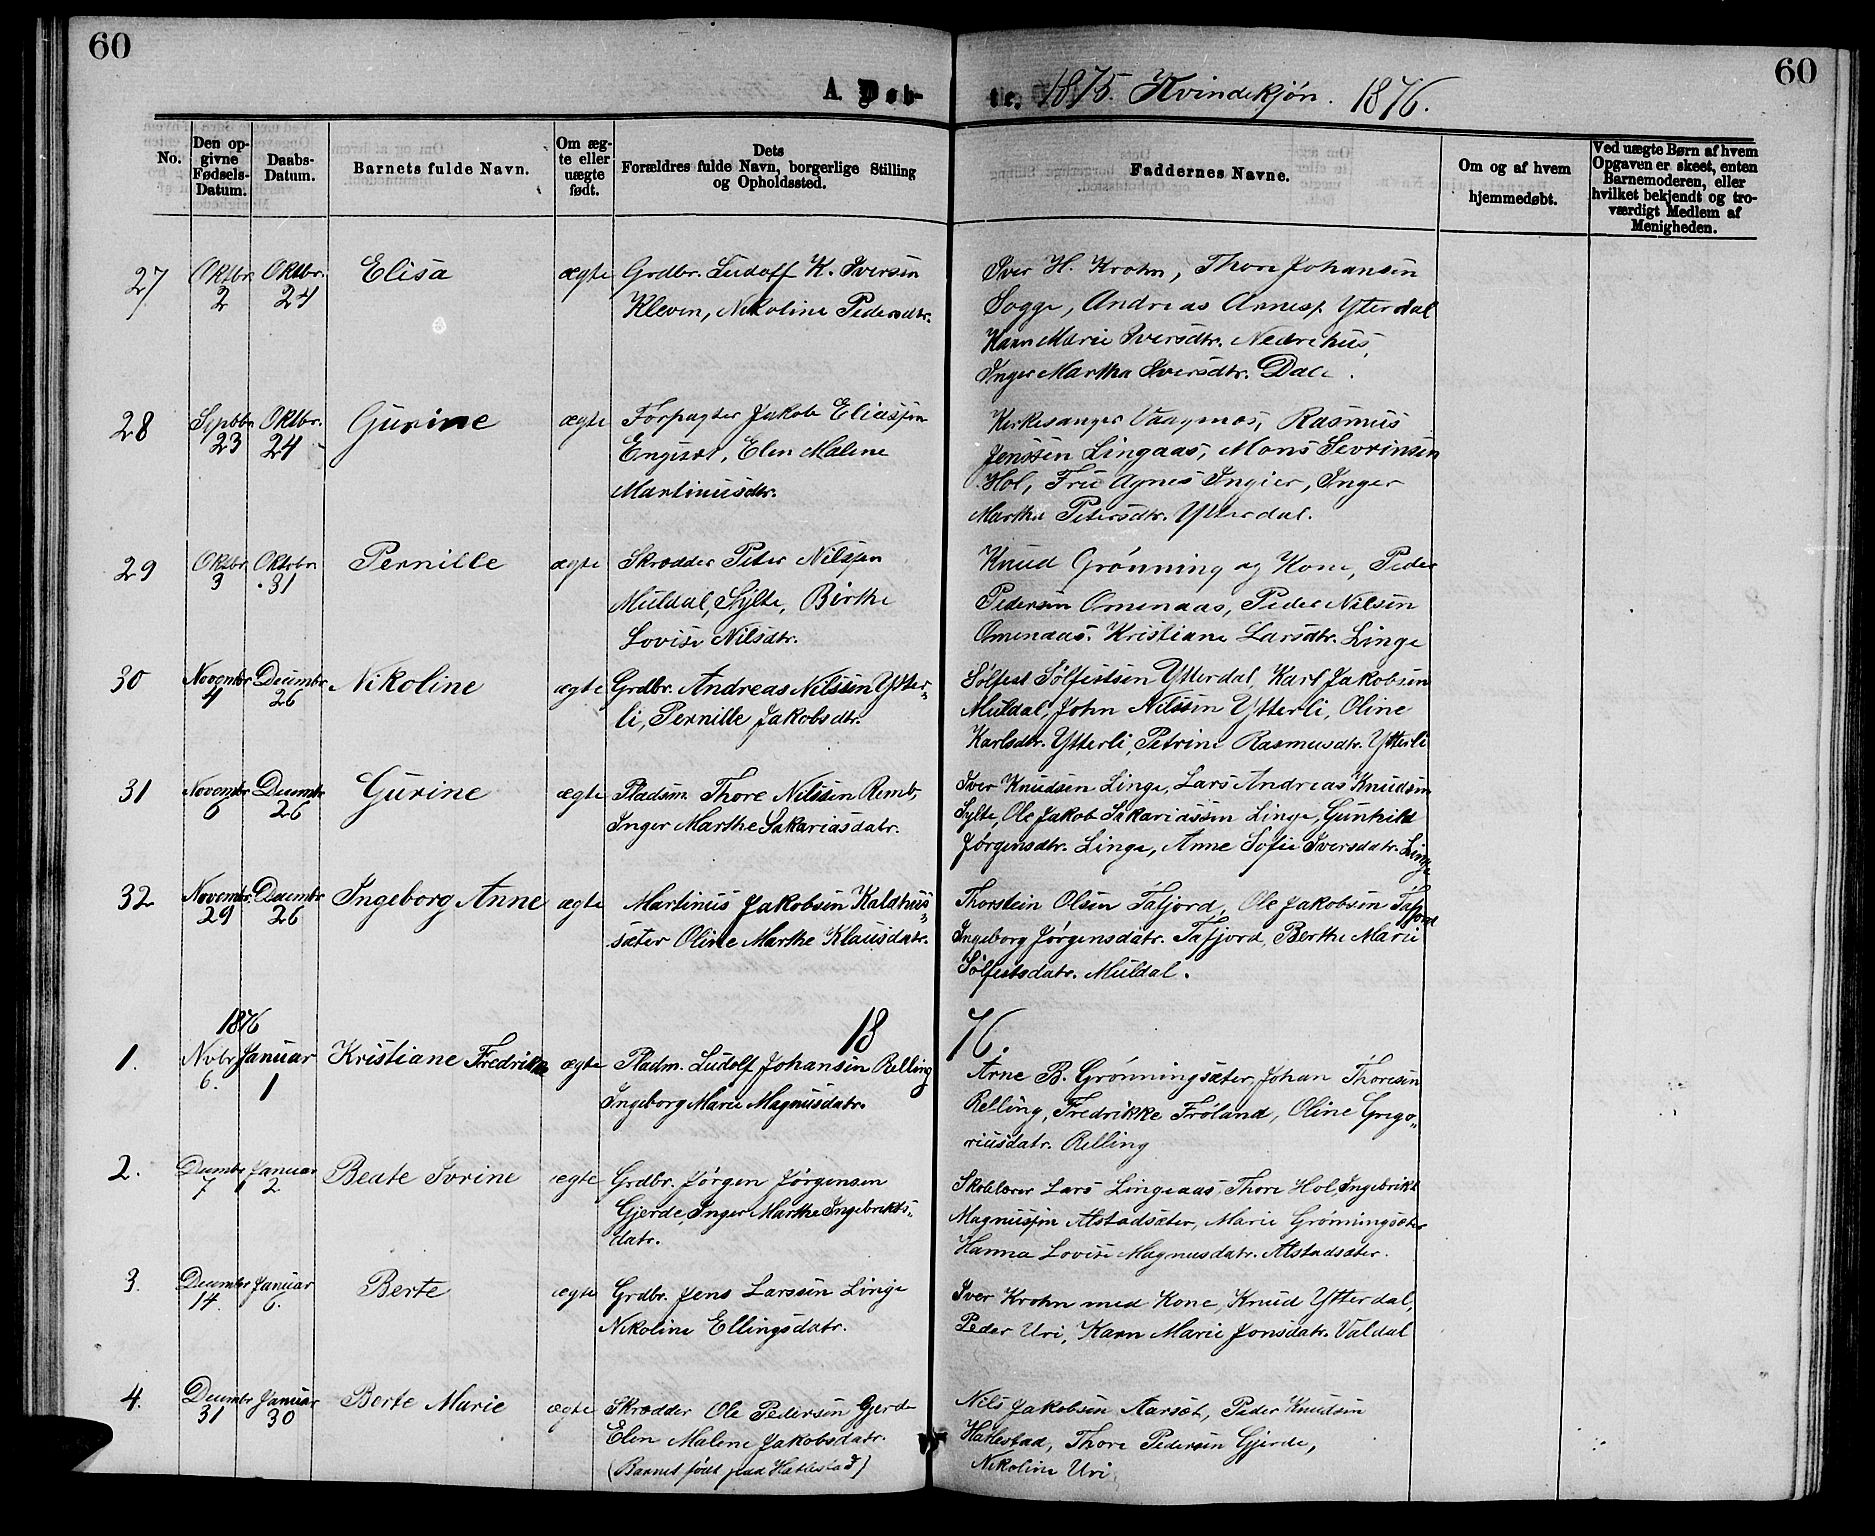 60
60
A. Døb-
te. 1875. Kvindekjøn. 1876.
No.
Den op-
givne
Fødsels-
Datum.
Daabs-
Datum.
Barnets fulde Navn.
Om æg-
te eller
uægte
født.
Dets
Forældres fulde Navn, borgerlige Stilling
og Opholdssted.
Faddernes Navne.
Om og af hvem
hjemmedøbt.
Ved uægte Børn af hvem
Opgaven er skeet, enten
Barnemoderen, eller
hvilket bekjendt og tro-
værdigt Medlem af
Menigheden.
27 Oktbr. 2 Oktbr. 24 Elisa ægte Grdbr. Ludolf K. Iversen
Kleven, Nikoline Pedersdtr.
Iver H. Krohn, Thore Johansen
Sogge, Andreas Arnesen Ytterdal
Karn Marie Iversdtr. Nedrehus,
Inger Martha Iversdtr. Dale.
28 Septbr 23 Oktbr. 24 Gurine ægte Forpagter Jakob Eliassen
Engiset, Elen Malene
Martinusdtr.
Kirkesanger Vaagnæs, Rasmus
Jenssen Lingaas, Mons Sevrinsen
Hol, Fru Agnes Ingier, Inger
Martha Petersdtr. Ytterdal.
29 Oktbr. 3 Oktbr. 31 Pernille ægte Skrædder Peter Nilssen
Muldal, Sylte, Birthe
Lovise Nilsdtr.
Knud Grønning og Kone, Peder
Pedersen Omenaas, Peder Nilsen
Omenaas. Kristiane Larsdtr. Linge
30 Novembr 4 Decembr 26 Nikoline ægte Grdbr. Andreas Nilssen Ytter-
li, Pernille Jakobsdtr.
Sølfest Sølfestsen Ytterdal, Karl Jakobsen
Muldal, John Nilssen Ytterli, Oline
Karlsdtr. Ytterli, Petrine Rasmusdtr. Ytterli
31 Novembr 6 Decembr 26 Gurine ægte Pladsm. Thore Nilssen Remb,
Inger Marthe Sakariasdatr.
Iver Knudsen Linge, Lars Andreas Knudsen
Sylte, Ole Jakob Sakariassen Linge, Gunhild
Jørgensdtr. Linge, Anne Sofie Iversdatr. Linge
32 Novembr. 29 Decembr 26 Ingeborg Anne ægte Martinus Jakobsen Kaldhus-
sæter Oline Marthe Klausdatr.
Thorstein Olsen Tafjord, Ole Jakobsen Tafjord
Ingeborg Jørgensdatr. Tafjord, Berthe Marie
Sølfestsdatr. Muldal.
1876
18 76.
1. Nvbr 6. Januar 1 Kristiane Fredrikke ægte Pladsm. Ludolf Johansen Relling
Ingeborg Marie Magnusdatr.
Arne B. Grønningsæter, Johan Thoresen
Relling, Fredrikke Frøland, Oline Grego-
riusdatr. Relling
2. Decembr 7 Januar 2 Beate Ivrine ægte Grdbr. Jørgen Jørgensen
Gjerde, Inger Marthe Ingebrikts-
datr.
Skolelærer Lars Lingeaas, Thore Hol, Ingebrikt
Magnussen Alstadsæter, Marie Grønningsæter
Hanna Lovise Magnusdatr. Alstadsæter.
3. Decembr 14. Januar 6. Berte ægte Grdbr. Jens Larssen Linge
Nikoline Ellingsdatr.
Iver Krohn med Kone, Knud Ytterdal,
Peder Uri, Karn Marie Jonsdatr. Valdal
4. Decembr 31 Januar 30 Berte Marie ægte Skrædder Ole Pedersen Gjerde
Elen Malene Jakobsdatr.
(Barnet født paa Hatlestad)
Nils Jakobsen Aarset, Peder Knudsen
Hatlestad, Thore Pedersen Gjerde,
Nikoline Uri